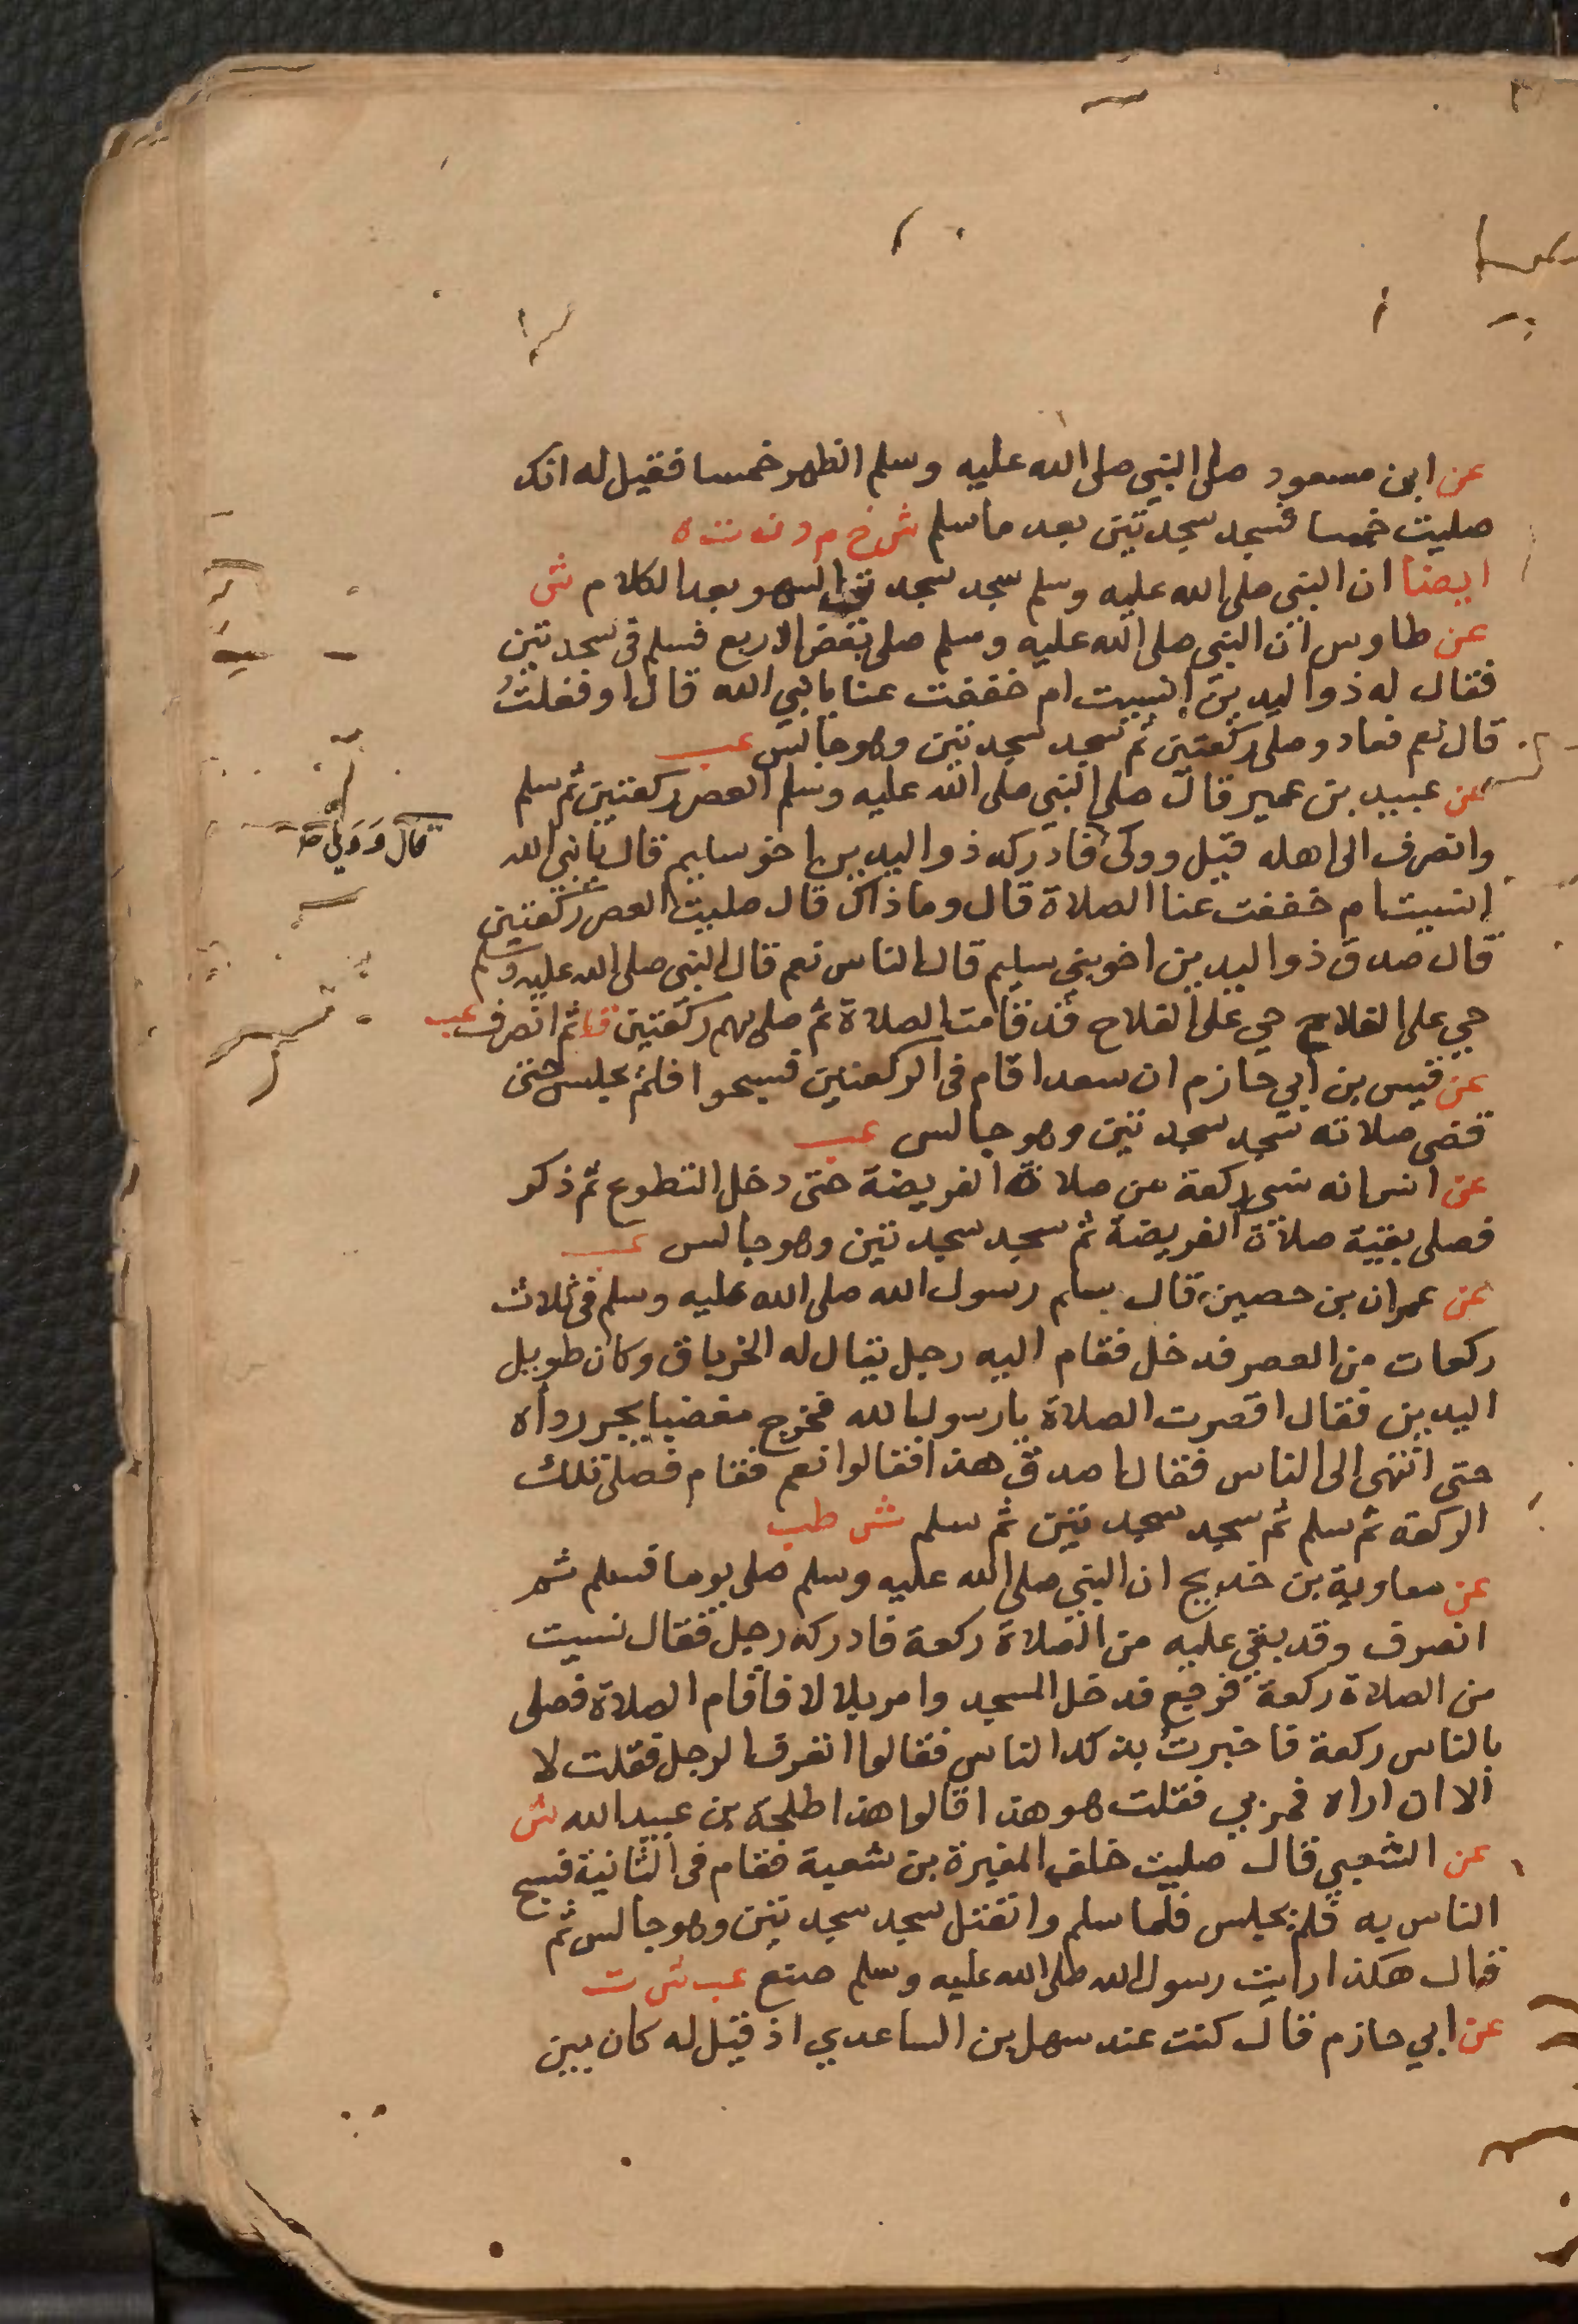 عن ابن مسعود صلى النبي صلى الله عليه وسلم الظهر خمسا فقيل له انك
صليت خمسا فسجد سجدتين بعد ما سلم ش خ م د ن ت ه
ايضا ان النبي صلى الله عليه وسلم سجد سجدتي السهو بعد الكلام ش
عن طاوس ان النبي صلى الله عليه وسلم صلى بعض الاربع فسلم في سجدتين
فقال له ذو اليدين انسيت ام خففت عنا يا نبي الله قال او فعلت
قال نعم فعاد وصلى ركعتين ثم سجد سجدتين وهو جالس عب
عن عبيد بن عمير قال صلى النبي صلى الله عليه وسلم العصر ركعتين ثم سلم
وانصرف الى اهله قيل وولى فادركه ذو اليدين اخو سليم قال يا نبي الله
انسيت ام خففت عنا الصلاة قال وما ذاك قال صليت العصر ركعتين
قال صدق ذو اليدين اخو بني سليم قال الناس نعم قال النبي صلى الله عليه وسلم
حي على الفلاح حي على الفلاح قد قامت الصلاة ثم صلى بهم ركعتين ثم انصرف عب
عن قيس بن ابي حازم ان سعدا قام في الركعتين فسبحوا فلم يجلس حتى
قضى صلاته سجد سجدتين وهو جالس عب
عن انس انه نسي ركعة من صلاة الفريضة حتى دخل التطوع ثم ذكر
فصلى بقية صلاة الفريضة ثم سجد سجدتين وهو جالس عب
عن عمران بن حصين قال سلم رسول الله صلى الله عليه وسلم في ثلاث
ركعات من العصر فدخل فقام اليه رجل يقال له الخرباق وكان طويل
اليدين فقال اقصرت الصلاة يا رسول الله فخرج مغضبا يجر رداه
حتى انتهى الى الناس فقال اصدق هذا فقالوا نعم فقام فصلى تلك
الركعة ثم سلم ثم سجد سجدتين ثم سلم ش طب
عن معاوية بن خديج ان النبي صلى الله عليه وسلم صلى يوما فسلم ثم
انصرف وقد بقي عليه من الصلاة ركعة فادركه رجل فقال نسيت
من الصلاة ركعة فرجع فدخل المسجد وامر بلالا فاقام الصلاة فصلى
بالناس ركعة فاخبرت بذلك الناس فقالوا اتعرف الرجل فقلت لا
الا ان اراه فمر بي فقلت هو هذا قالوا هذا طلحة بن عبيد الله ش
عن الشعبي قال صليت خلف المغيرة بن شعبة فقام في الثانية فسبح
الناس به فلم يجلس فلما سلم وانفتل سجد سجدتين وهو جالس ثم
قال هكذا رايت رسول الله صلى الله عليه وسلم صنع عب ش ت
عن ابي حازم قال كنت عند سهل بن الساعدي اذ قيل له كان بين